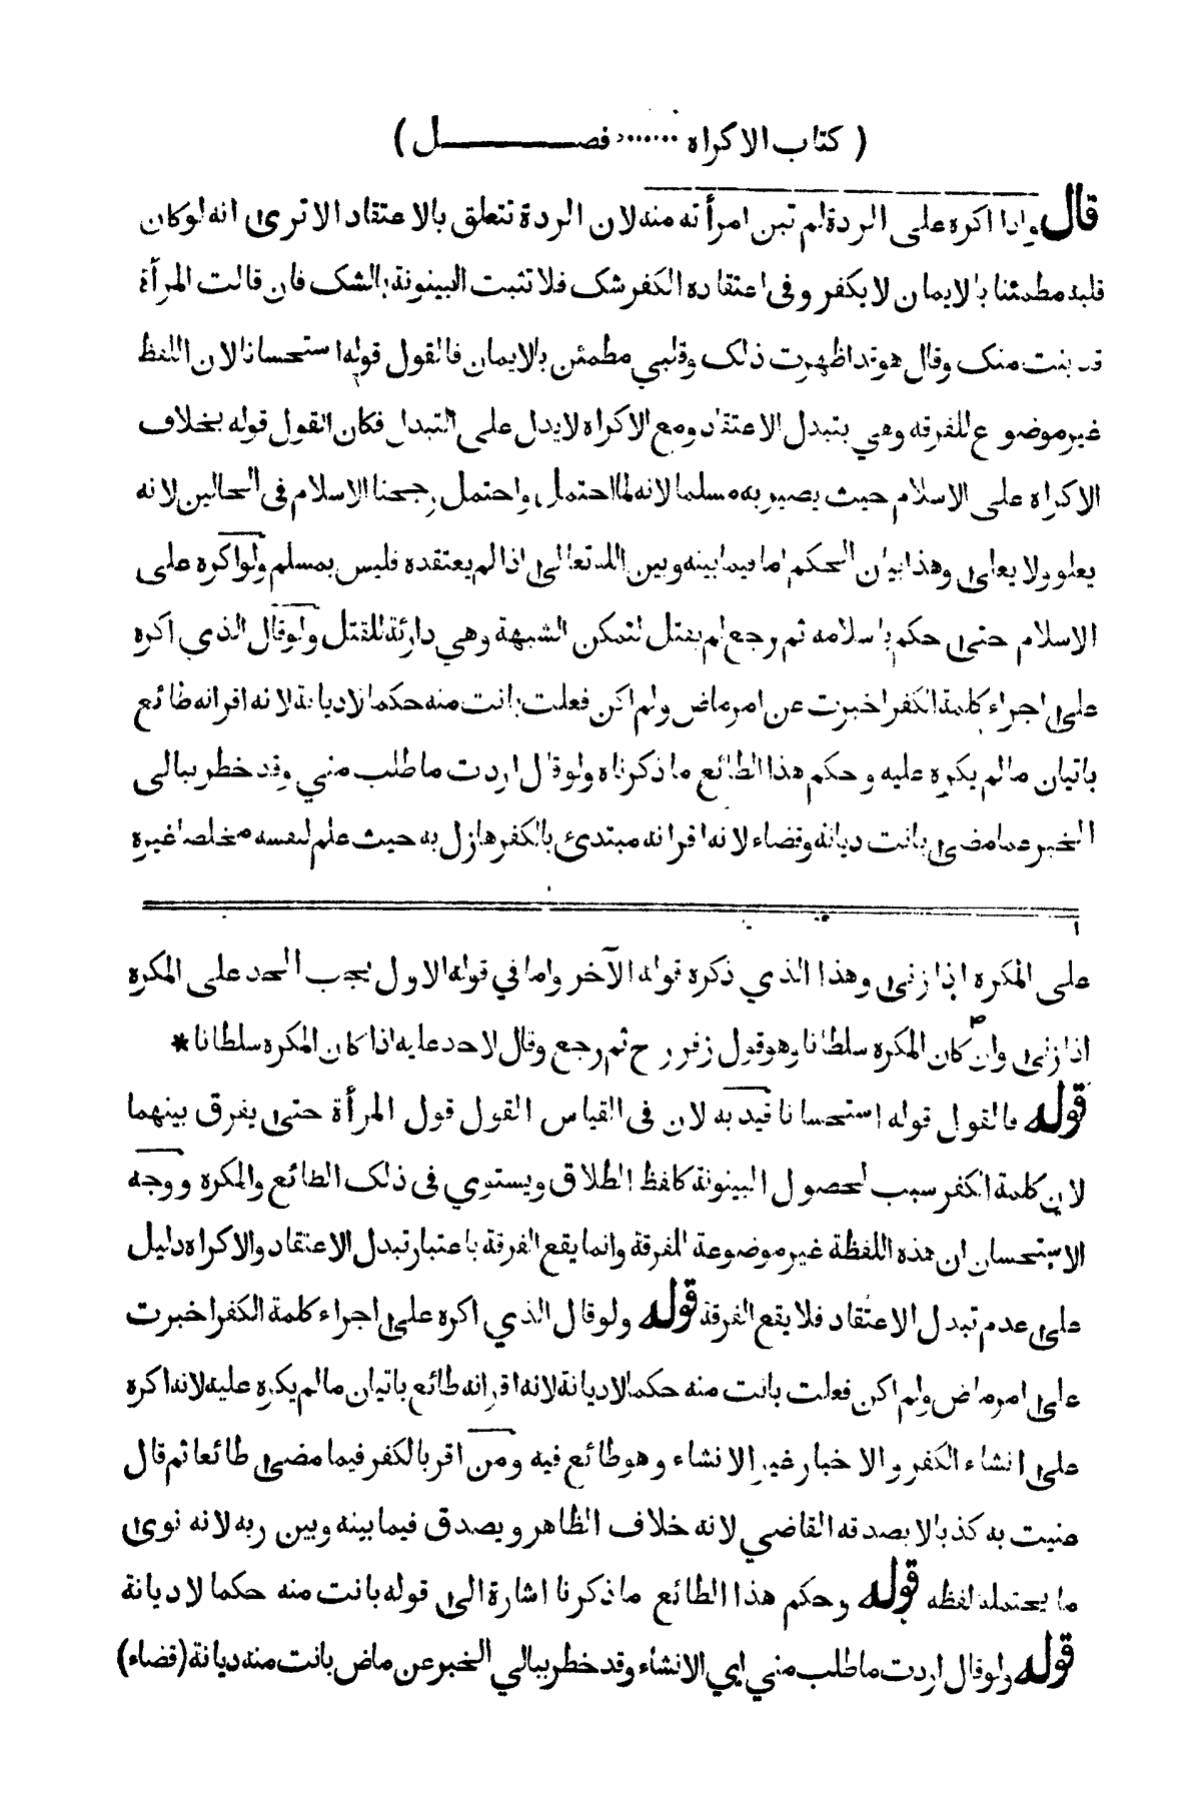 ( كتاب الاكراه ...... فصل )
قال واذا اكره على الردة لم تبن امرأته منه لان الردة تتعلق بالاعتقاد الا ترى انه لو كان
قلبه مطمئنا بالايمان لا يكفر وفى اعتقاده الكفر شك فلا تثبت البينونة بالشك فان قالت المرأة
قد بنت منك وقال هو قد اظهرت ذلك وقلبي مطمئن بالايمان فالقول قوله استحسانا لان اللفظ
غير موضوع للفرقه وهي بتبدل الاعتقاد ومع الاكراه لا يدل على التبدل فكان القول قوله بخلاف
الاكراه على الاسلام حيث يصير به مسلما لانه لما احتمل واحتمل رجحنا الاسلام فى الحالين لانه
يعلو ولا يعلى وهذا بيان الحكم اما فيما بينه وبين الله تعالى اذا لم يعتقده فليس بمسلم ولو اكره على
الاسلام حتى حكم باسلامه ثم رجع لم يقتل لتمكن الشبهة وهي دارئة للقتل ولو قال الذي اكره
على اجراء كلمة الكفر اخبرت عن امر ماض ولم اكن فعلت بانت منه حكما لا ديانة لانه اقر انه طائع
باتيان ما لم يكره عليه وحكم هذا الطائع ما ذكرناه ولو قال اردت ما طلب مني وقد خطر ببالى
الخبر عما مضى بانت ديانة وقضاء لانه اقر انه مبتدئ بالكفر هازل به حيث علم لنفسه مخلصا غيره
على المكره اذا زنى وهذا الذي ذكره قوله الآخر واما في قوله الاول يجب الحد على المكره
اذا زنى وان كان المكره سلطانا وهو قول زفر رح ثم رجع وقال لا حد عليه اذا كان المكره سلطانا *
قوله فالقول قوله استحسانا قيد به لان فى القياس القول قول المرأة حتى يفرق بينهما
لان كلمة الكفر سبب لحصول البينونة كلفظ الطلاق ويستوي فى ذلك الطائع والمكره ووجه
الاستحسان ان هذه اللفظة غير موضوعة للفرقة وانما يقع الفرقة باعتبار تبدل الاعتقاد والاكراه دليل
على عدم تبدل الاعتقاد فلا يقع الفرقة قوله ولو قال الذي اكره على اجراء كلمة الكفر اخبرت
على امر ماض ولم اكن فعلت بانت منه حكما لا ديانة لانه اقر انه طائع باتيان ما لم يكره عليه لانه اكره
على انشاء الكفر والاخبار غير الانشاء وهو طائع فيه ومن اقر بالكفر فيما مضى طائعا ثم قال
عنيت به كذبا لا يصدقه القاضي لانه خلاف الظاهر ويصدق فيما بينه وبين ربه لانه نوى
ما يحتمله لفظه قوله وحكم هذا الطائع ما ذكرنا اشارة الى قوله بانت منه حكما لا ديانة
قوله ولو قال اردت ما طلب مني اي الانشاء وقد خطر ببالي الخبر عن ماض بانت منه ديانة (قضاء)